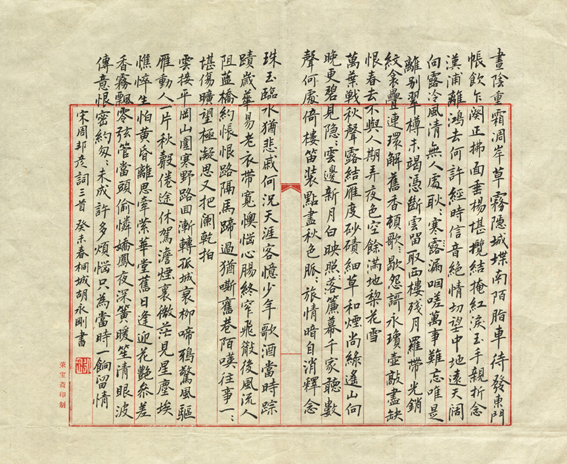 晝陰重霜凋岸草霧隱城堞南陌脂車待發東門
帳飲乍闋正拂面垂楊堪攬結掩紅淚玉手親折念
漢浦離鴻去何許經時信音絕情切望中地遠天闊
向露冷風清無人處耿寒露漏咽嗟萬事難忘唯是
離別翠樽未竭憑斷雲留取西樓殘月羅帶光銷
紋衾疊連環解舊香頓歇怨謌永瓊壺敲盡缺
恨春去不與人期弄夜色空餘滿地梨花雪
萬葉戰秋聲露結雁度砂磧細草和煙尚綠遙山向
晚更碧見隱:雲邊新月白映照落簾幕千家聽數
聲何處倚樓笛裝點盡秋色脈:旅情暗自消釋念
珠玉臨水猶悲戚何況天涯客憶少年歌酒當時踪
蹟歲華易老衣帶寬懊惱心腸終窄飛散後風流人
阻藍橋約悵恨路隔馬蹄過猶嘶舊巷陌嘆往事一:
堪傷曠望極凝思又把闌乾拍
雲接平岡山圍寒野路回漸轉孤城衰柳啼鴉驚風驅
雁動人一片秋聲倦途休駕澹煙裏微茫見星塵埃
憔悴生怕黃昏離思牽縈華堂舊日逢迎花艷參差
香霧飄零弦管當頭偏憐嬌鳳夜深簧暖笙清眼波
傳意恨密約匆:未成許多煩惱只為當時一餉留情
宋周邦彥詞三首 癸未春桐城胡永剛書
榮寶齋印製